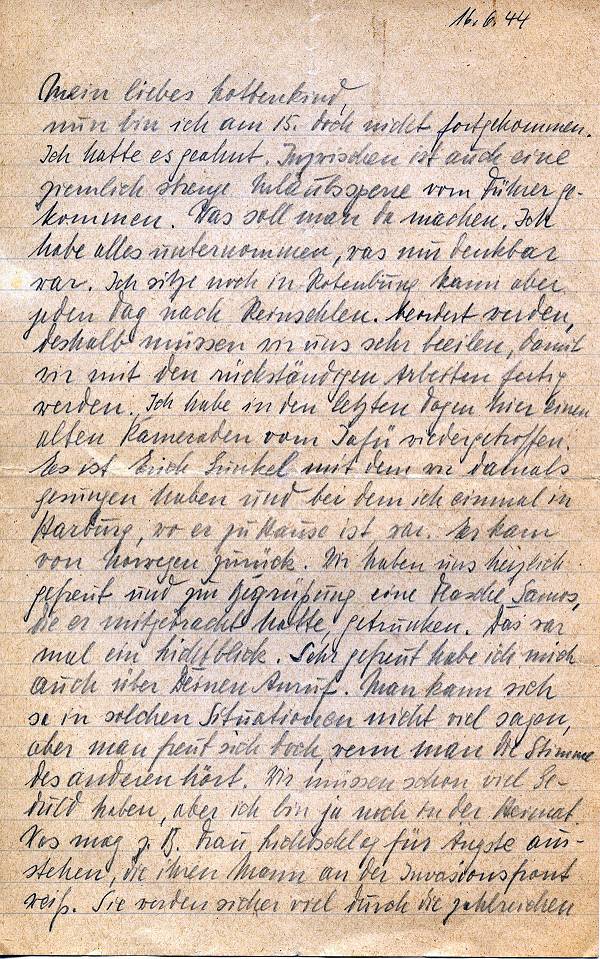 16.6.44
Mein liebes Lottenkind,
nun bin ich am 15. doch nicht fortgekommen.
Ich hatte es geahnt. Inzwischen ist auch eine
ziemlich strenge Urlaubssperre vom Führer ge-
kommen. Was soll man da machen. Ich
habe alles unternommen, was nur denkbar
war. Ich sitze noch in Rotenburg kann aber
jeden Tag nach Reinsehlen beordert werden,
deshalb müssen wir uns sehr beeilen, damit
wir mit den rückständigen Arbeiten fertig
werden. Ich habe in den letzten Tagen hier einen
alten Kameraden vom Jafü wiedergetroffen.
Es ist Erich Gunkel mit dem wir damals
gesungen haben und bei dem ich einmal in
Harburg, wo er zu Hause ist, war. Er kam
von Norwegen zurück. Wir haben uns herzlich
gefreut und zur Begrüßung eine Flasche Samos,
die er mitgebracht hatte, getrunken. Das war
mal ein Lichtblick. Sehr gefreut habe ich mich
auch über Deinen Anruf. Man kann sich
so in solchen Situationen nicht viel sagen,
aber man freut sich doch, wenn man die Stimme
des anderen hört. Wir müssen schon viel Ge-
duld haben, aber ich bin ja noch in der Heimat.
Was mag z. B. Frau Lichtschlag für Ängste aus-
stehen, die ihren Mann an der Invasionsfront
weiß. Sie werden sicher viel durch die zahlreichen